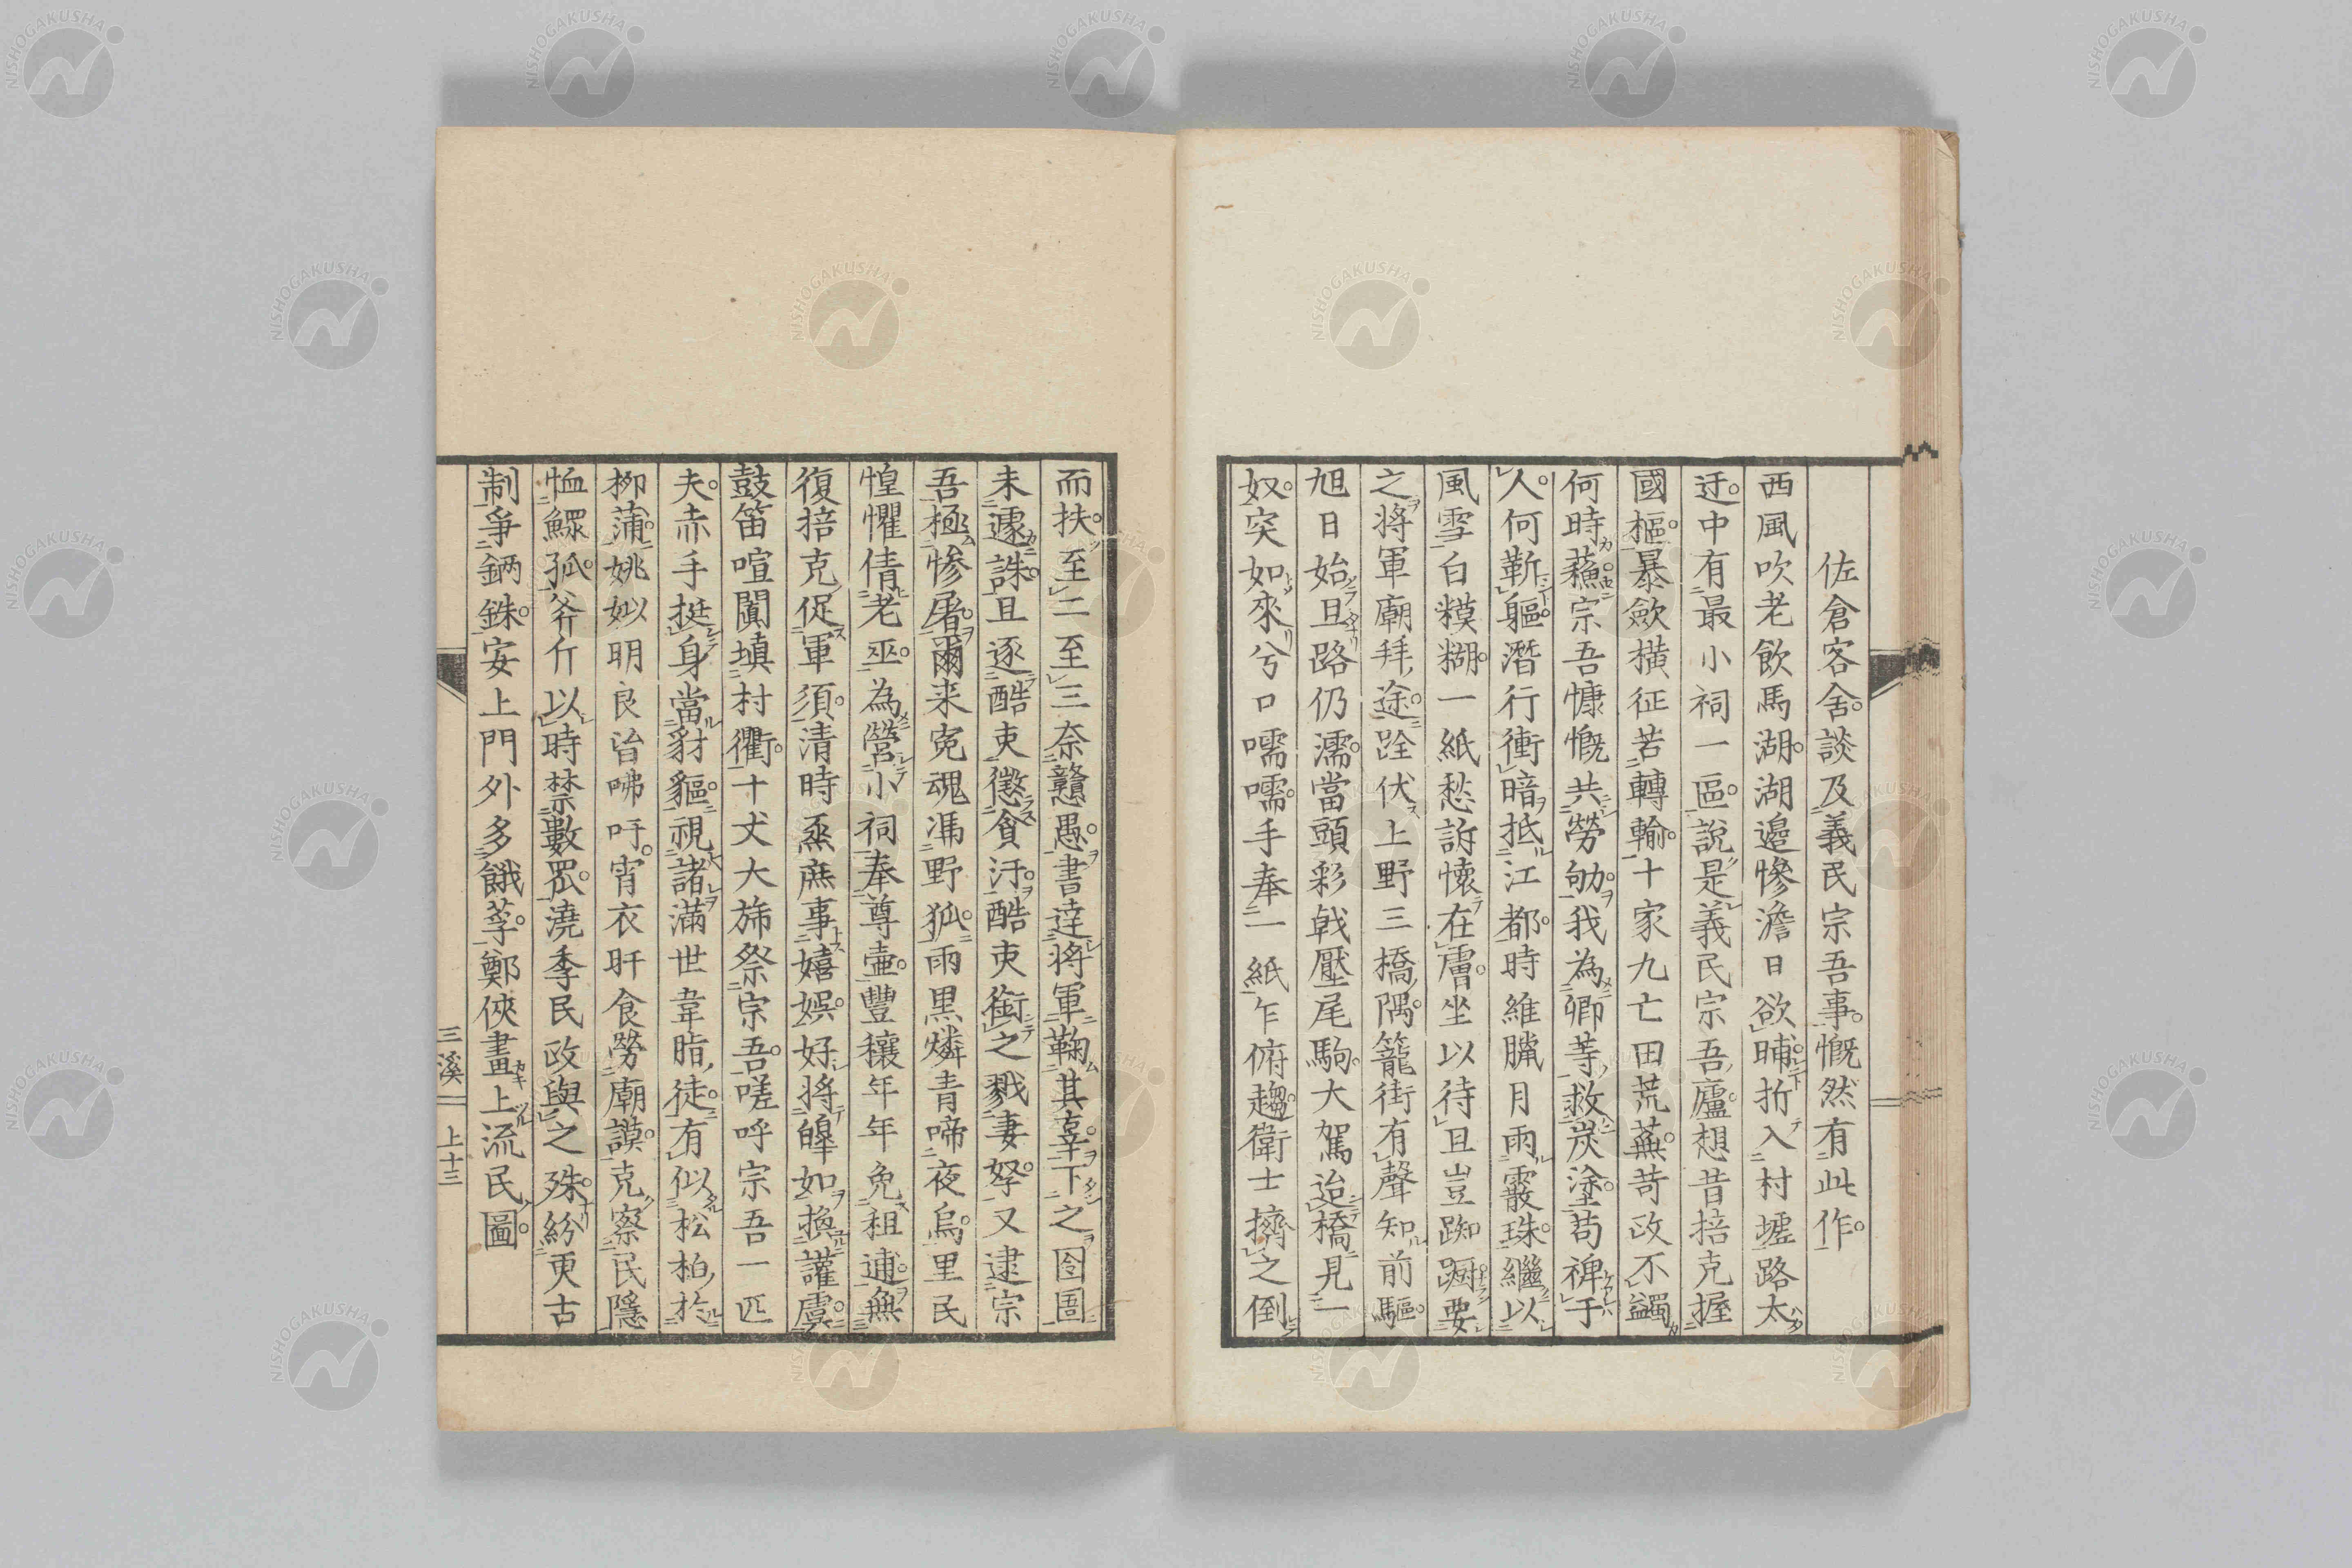 佐倉客舍。談及義民宗吾事。慨然有此作。
西風吹老飲馬湖。湖邉慘澹日欲晡。折入村墟路太
迂。中有最小祠一區。說是義民宗吾廬。想昔掊克握
國樞。暴歛橫征苦轉輸。十家九亡田荒蕪。苛政不蠲
何時蘓。宗吾慷慨共勞劬。我為卿等救炭塗。苟裨于
人。何靳軀。潛行衝暗抵江都。時維臘月雨霰珠。繼以
風雪白糢糊。一紙愁訴懷在膚。坐以待旦豈踟蹰。要
之將軍廟拜途。跧伏上野三橋隅。籠街有聲知前驅。
旭日始旦路仍濡。當頭彩戟壓尾駒。大駕迨橋見一
奴。突如來兮口嚅嚅。手奉一紙乍俯趨。衛士擠之倒
而扶。至二至三奈戇愚。書達將軍鞠其辜。下之囹圄
未遽誅。且逐酷吏懲貪汙。酷吏銜之戮妻孥。又逮宗
吾極慘屠。爾来寃魂馮野狐。雨黒燐青啼夜烏。里民
惶懼倩老巫。為營小祠奉尊壺。豐穰年年免租逋。無
復掊克促軍須。清時烝庶事嬉娯。好將皥如換讙虞。
鼓笛喧闐塡村衢。十犬大旆祭宗吾。嗟呼宗吾一匹
夫。赤手挺身當豺貙。視諸滿世韋脂徒。有似松柏於
柳蒲。姚姒明良咨咈吁。宵衣旰食勞廟謨。克察民隱
恤鰥孤。斧斤以時禁數罛。澆季民政與之殊。紛更古
制爭錙銖。安上門外多餓莩。鄭俠畫上流民圖。
三溪 上十三
NISHOGAKUSHA